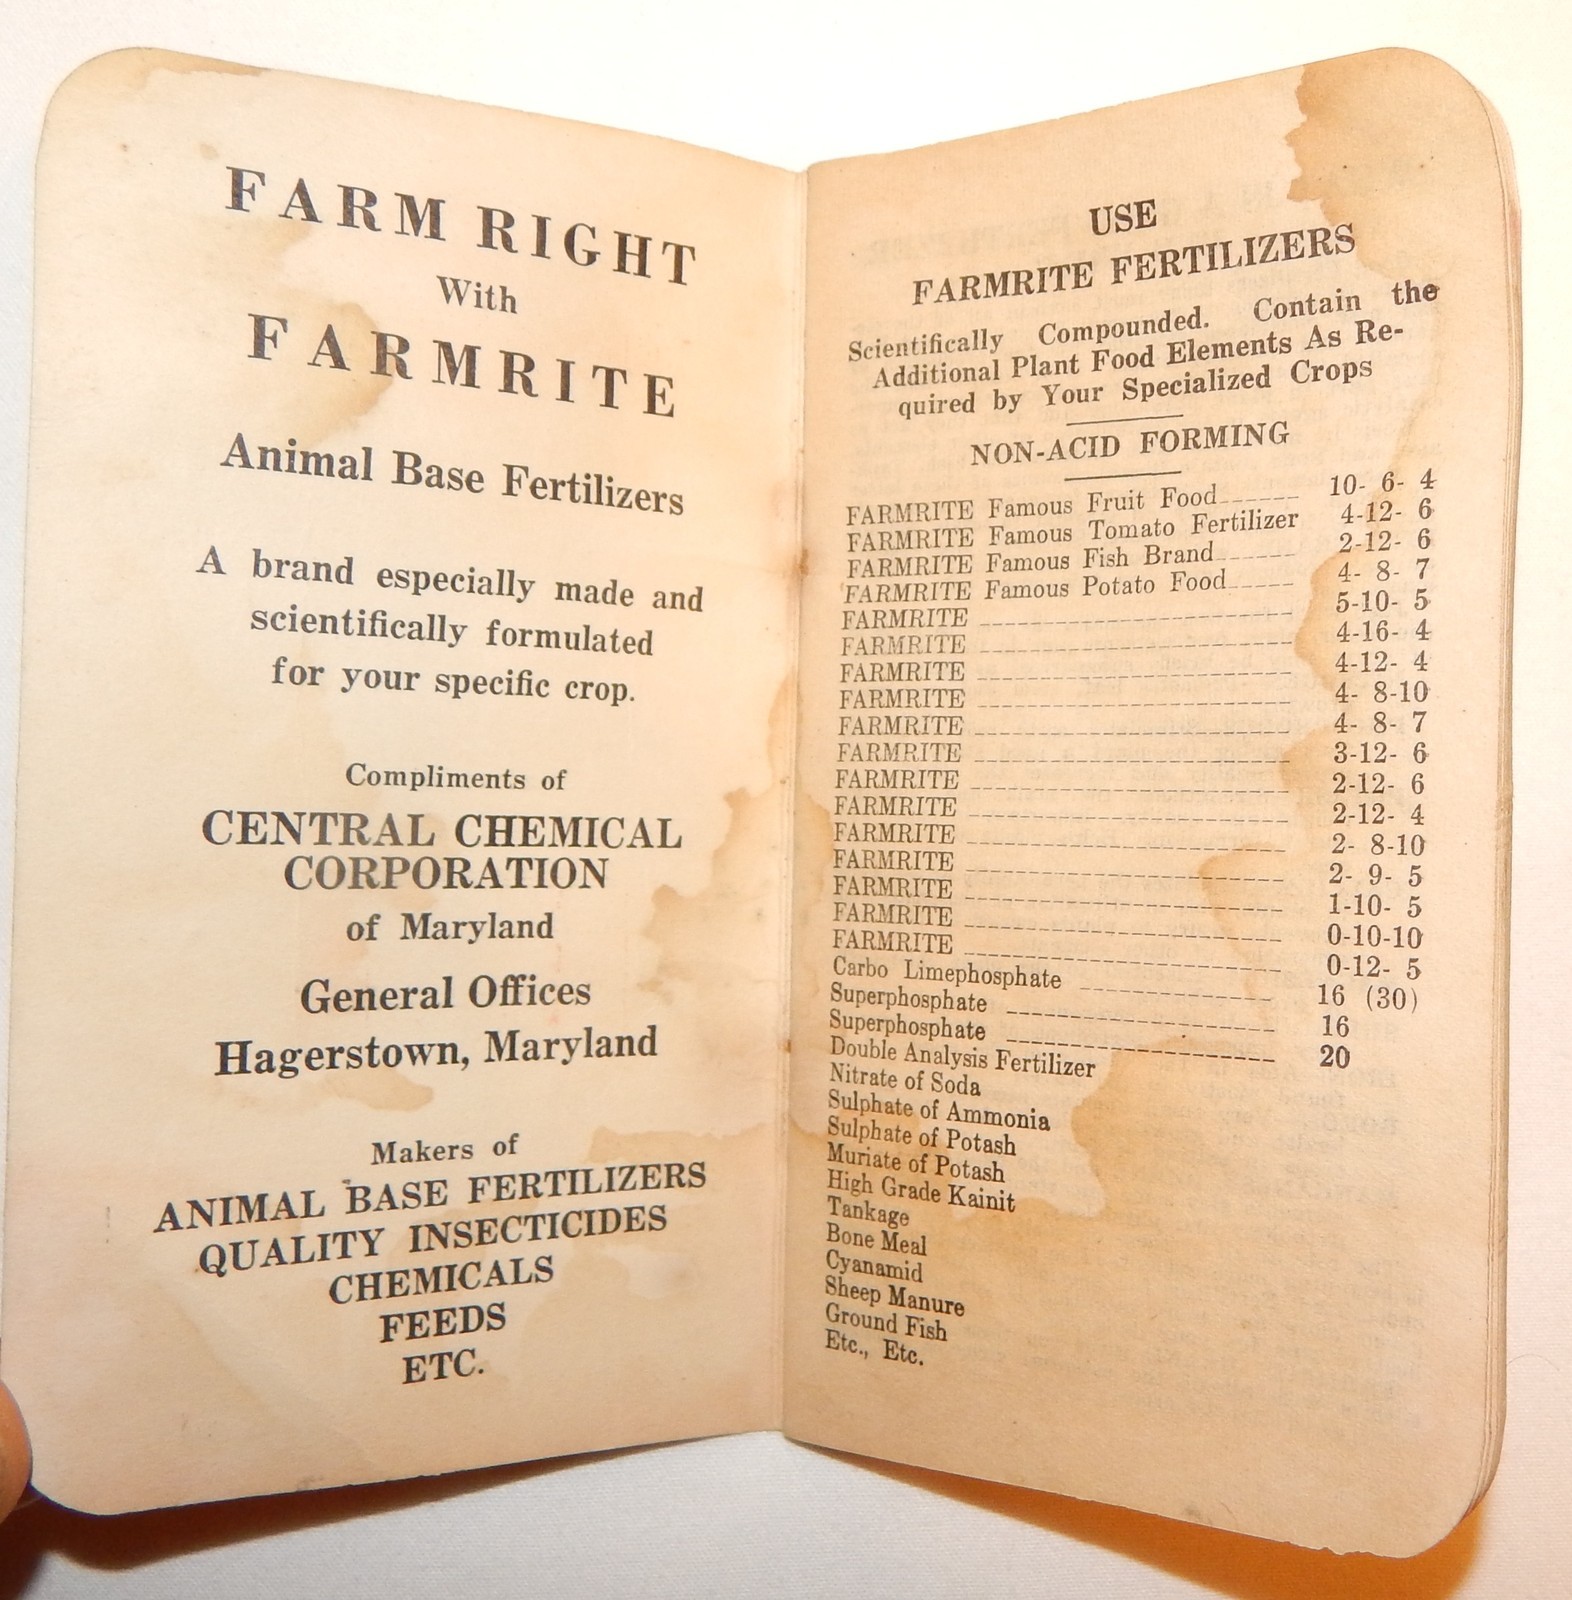 FARM RIGHT
With
FARMRITE
Animal Base Fertilizers
A brand especially made and
scientifically formulated
for your specific crop.
Compliments of
CENTRAL CHEMICAL
CORPORATION
of Maryland
General Offices
Hagerstown, Maryland
Makers of
ANIMAL BASE FERTILIZERS
QUALITY INSECTICIDES
CHEMICALS
FEEDS
ETC.
USE
FARMRITE FERTILIZERS
Scientifically Compounded. Contain the
Additional Plant Food Elements As Re-
quired by Your Specialized Crops
NON-ACID FORMING
FARMRITE Famous Fruit Food 10- 6- 4
FARMRITE Famous Tomato Fertilizer 4-12- 6
FARMRITE Famous Fish Brand 2-12- 6
FARMRITE Famous Potato Food 4- 8- 7
FARMRITE 5-10- 5
FARMRITE 4-16- 4
FARMRITE 4-12- 4
FARMRITE 4- 8-10
FARMRITE 4- 8- 7
FARMRITE 3-12- 6
FARMRITE 2-12- 6
FARMRITE 2-12- 4
FARMRITE 2- 8-10
FARMRITE 2- 9- 5
FARMRITE 1-10- 5
FARMRITE 0-10-10
FARMRITE 0-12- 5
Carbo Limephosphate 16 (30)
Superphosphate 16
Superphosphate 20
Double Analysis Fertilizer
Nitrate of Soda
Sulphate of Ammonia
Sulphate of Potash
Muriate of Potash
High Grade Kainit
Tankage
Bone Meal
Cyanamid
Sheep Manure
Ground Fish
Etc., Etc.